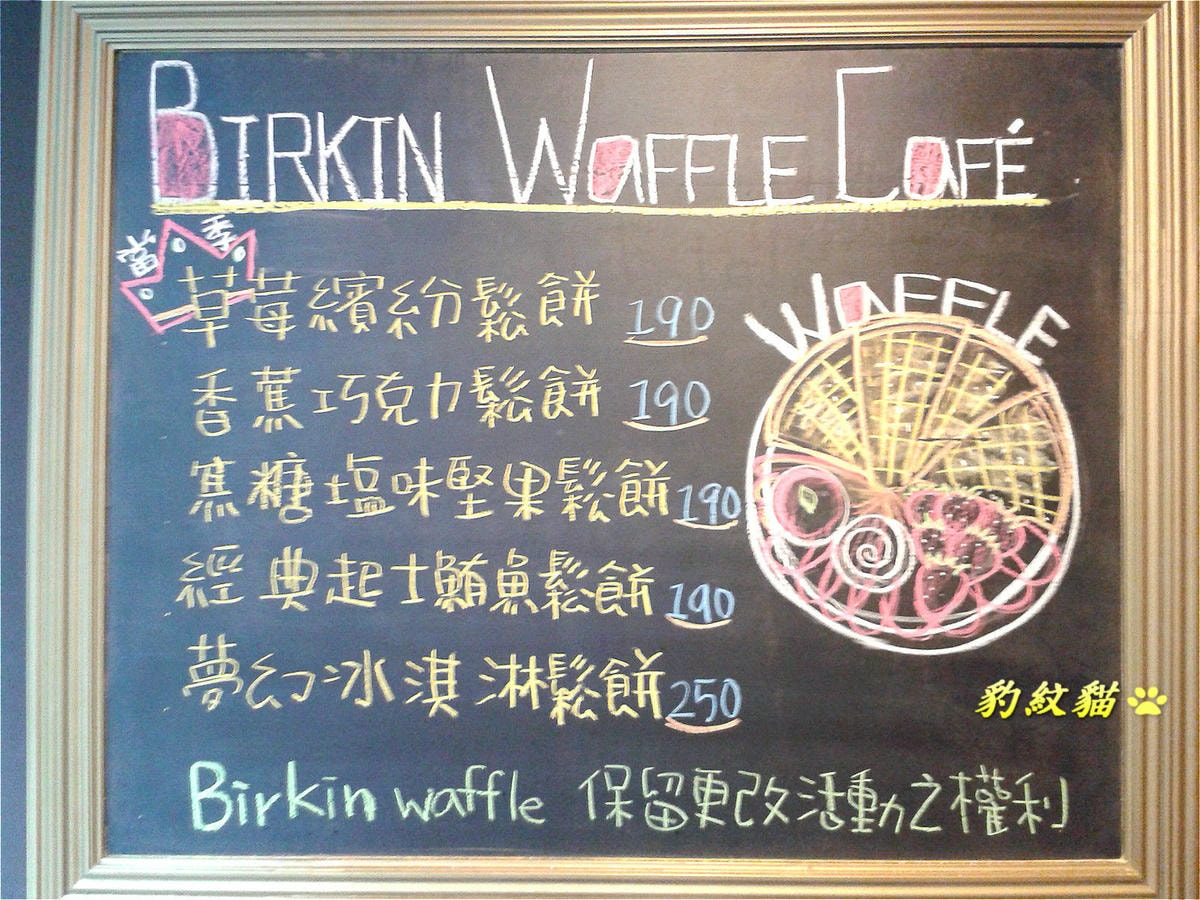 BIRKIN WaFFLE CaFÉ
當季
草莓繽紛鬆餅 190
香蕉巧克力鬆餅 190
WaFFLE
焦糖塩味堅果鬆餅 190
經典起士鮪魚鬆餅 190
夢幻冰淇淋鬆餅 250
豹紋貓
Birkin waffle 保留更改活動之權利